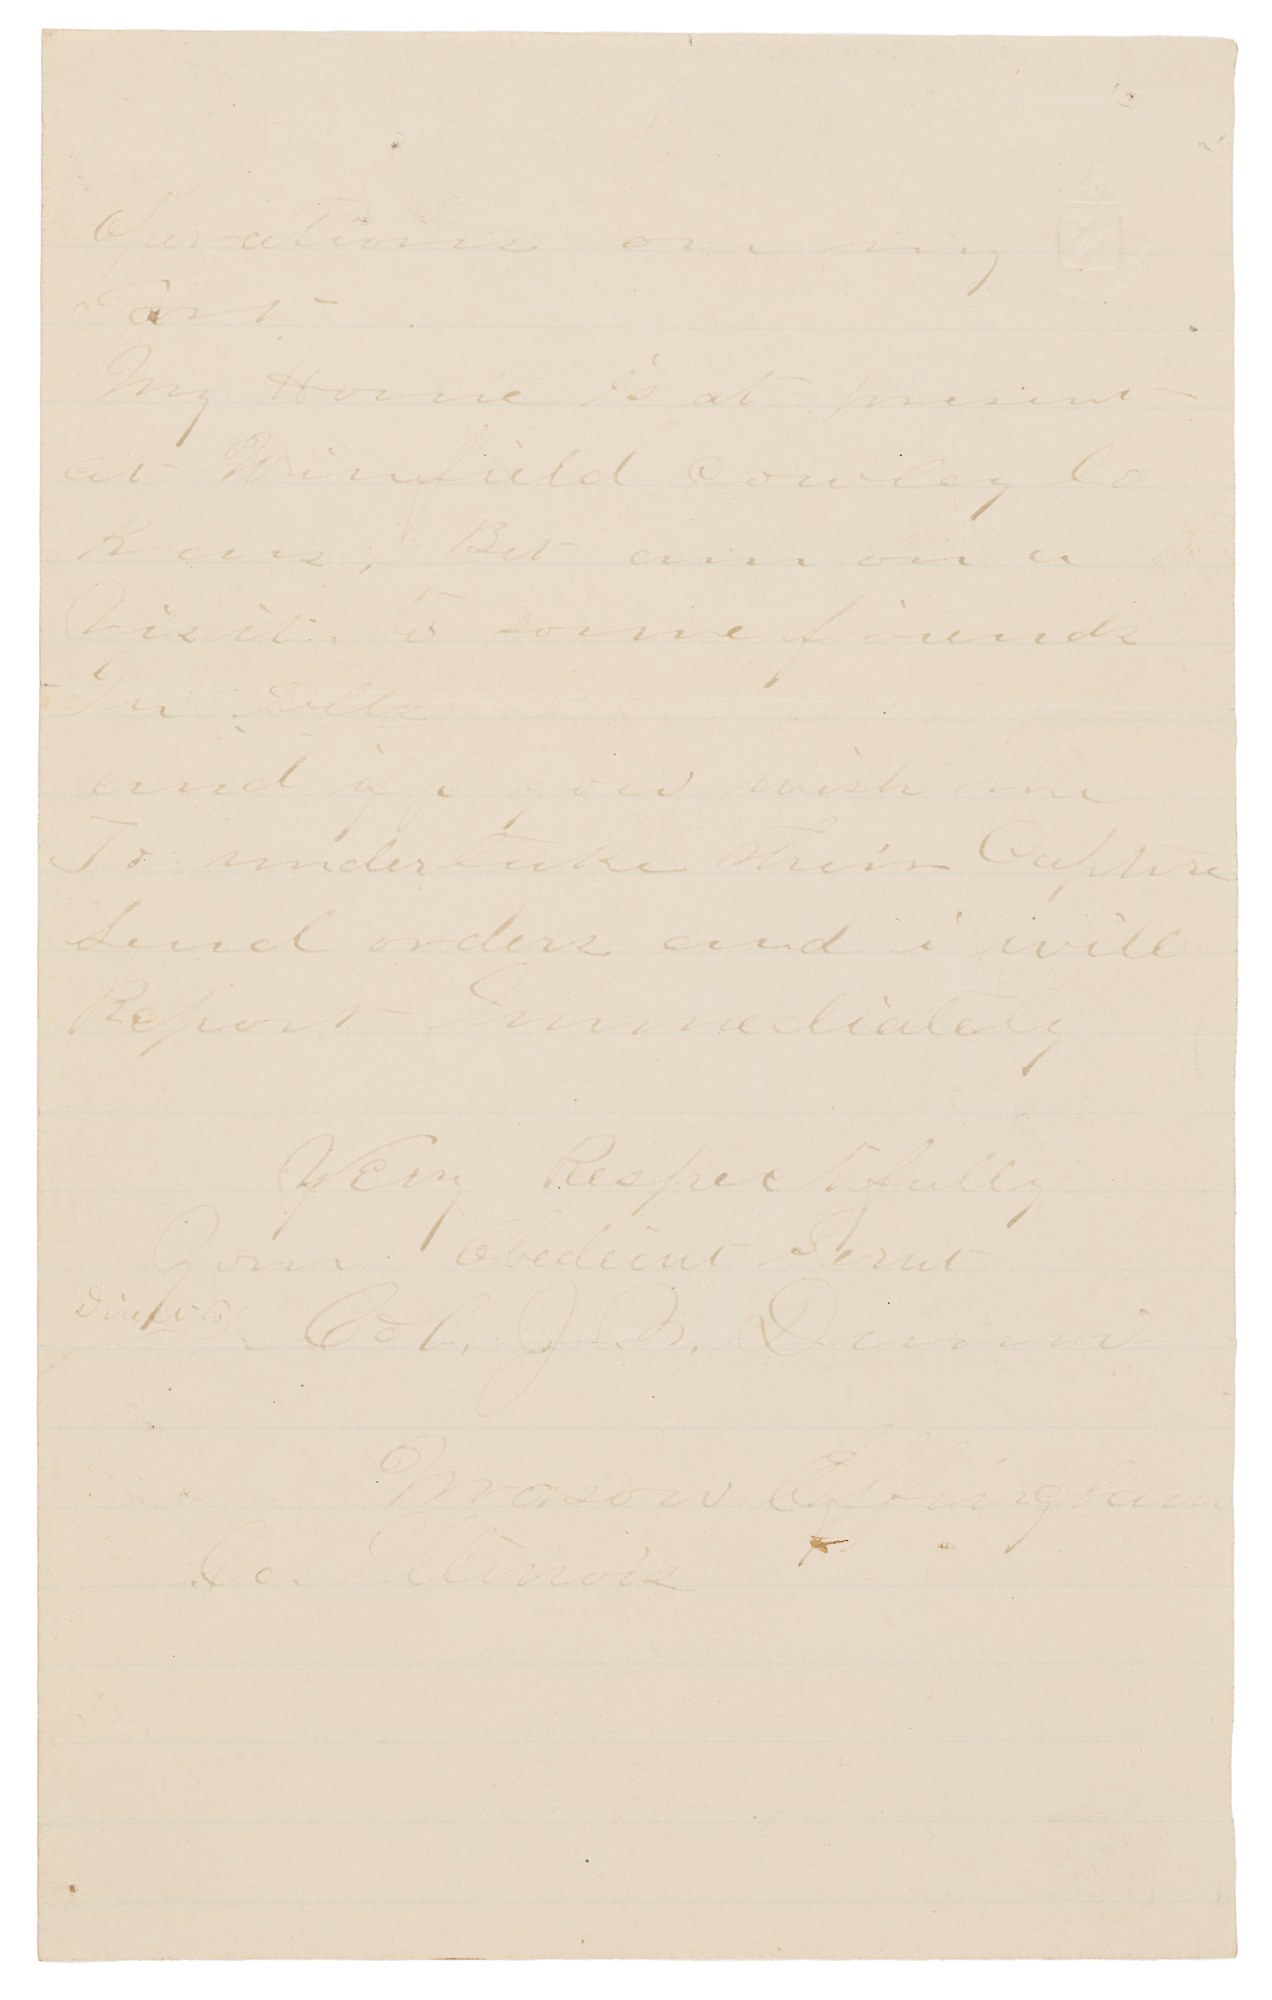 Operations on my
Part
My Home is at present
at Winfield Cowley Co
Kans, But am on a
visit to some friends
In Ills
and iff you wish me
To undertake their Capture
Send orders and i will
Report Immediately
Very Respectfully
Your Obedeint Servt
Direct to Col. J. M. Dunn
Mason Effingham
Co. Illinois